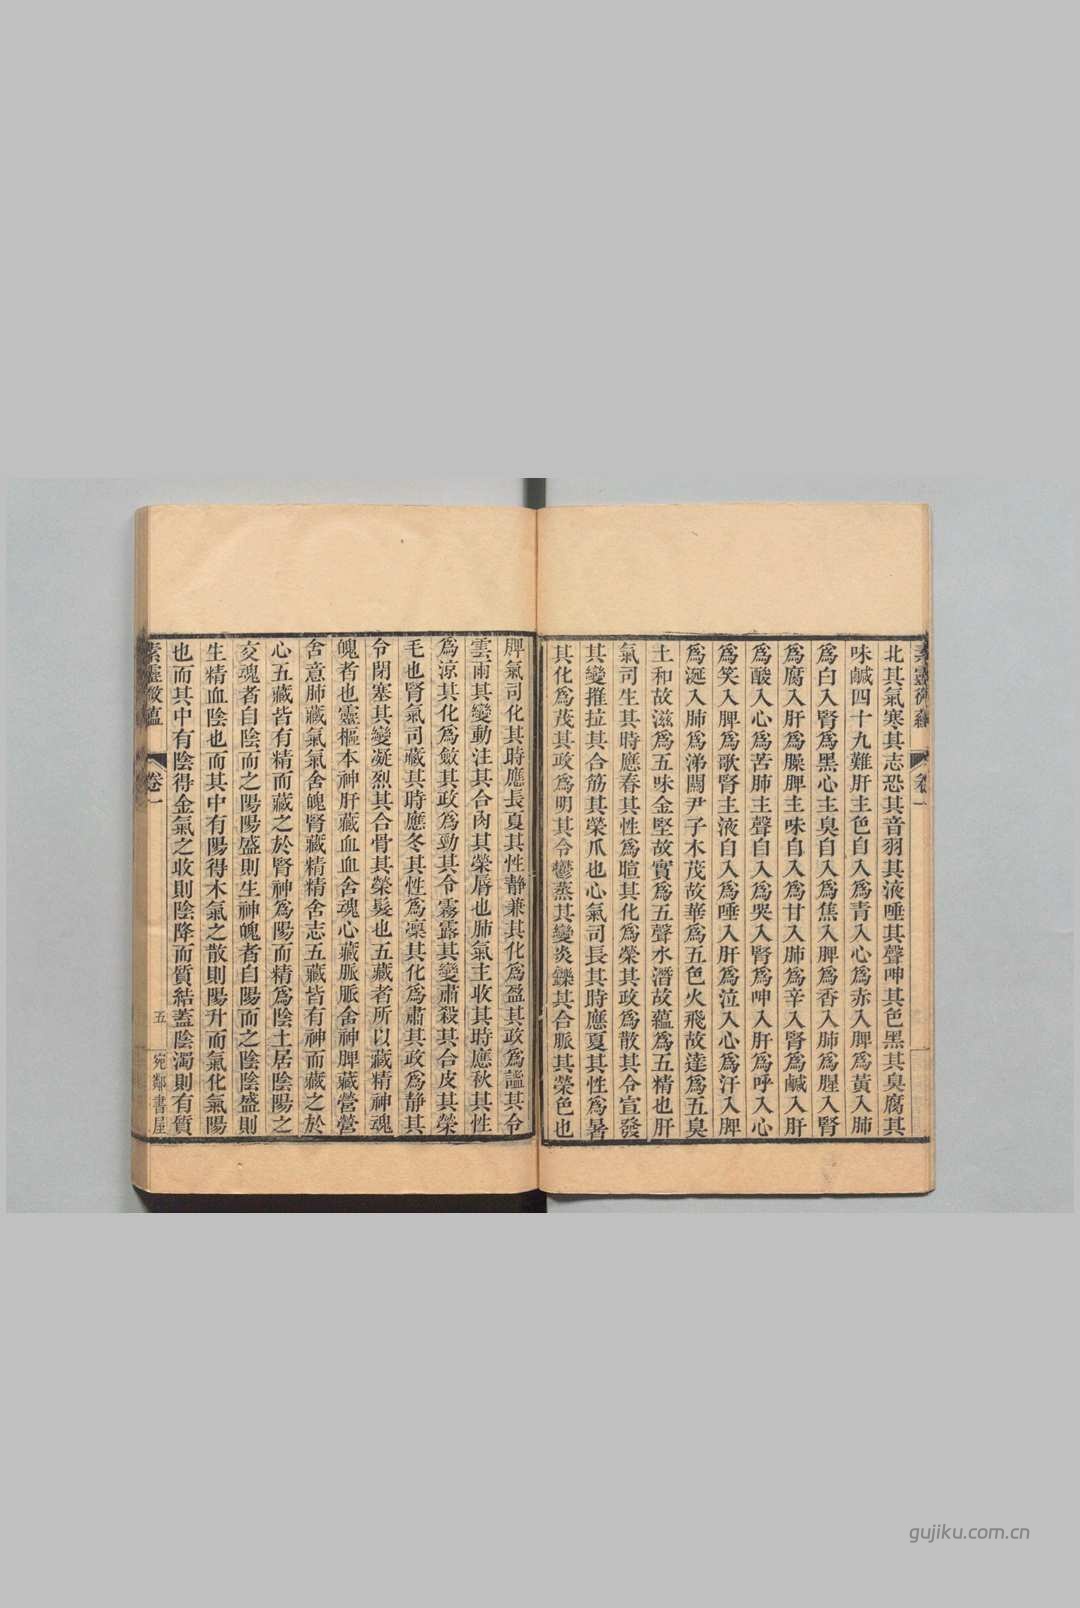 素靈微蘊 卷一
北其氣寒其志恐其音羽其液唾其聲呻其色黑其臭腐其
味鹹四十九難肝主色自入為青入心為赤入脾為黃入肺
為白入腎為黑心主臭自入為焦入脾為香入肺為腥入腎
為腐入肝為臊脾主味自入為甘入肺為辛入腎為鹹入肝
為酸入心為苦肺主聲自入為哭入腎為呻入肝為呼入心
為笑入脾為歌腎主液自入為唾入肝為泣入心為汗入脾
為涎入肺為涕關尹子木茂故華為五色火飛故達為五臭
土和故滋為五味金堅故實為五聲水潛故蘊為五精也肝
氣司生其時應春其性為暄其化為榮其政為散其令宣發
其變摧拉其合筋其榮爪也心氣司長其時應夏其性為暑
其化為茂其政為明其令鬱蒸其變炎鑠其合脈其榮色也
脾氣司化其時應長夏其性靜兼其化為盈其政為謐其令
雲雨其變動注其合肉其榮脣也肺氣主收其時應秋其性
為涼其化為斂其政為勁其令霧露其變肅殺其合皮其榮
毛也腎氣司藏其時應冬其性為凛其化為肅其政為靜其
令閉塞其變凝烈其合骨其榮髮也五藏者所以藏精神魂
魄者也靈樞本神肝藏血血舍魂心藏脈脈舍神脾藏營營
舍意肺藏氣氣舍魄腎藏精精舍志五藏皆有神而藏之於
心五藏皆有精而藏之於腎神為陽而精為陰土居陰陽之
交魂者自陰而之陽陽盛則生神魄者自陽而之陰陰盛則
生精血陰也而其中有陽得木氣之散則陽升而氣化氣陽
也而其中有陰得金氣之收則陰降而質結蓋陰濁則有質
素靈微蘊 卷一 五 宛鄰書屋
gujiku.com.cn